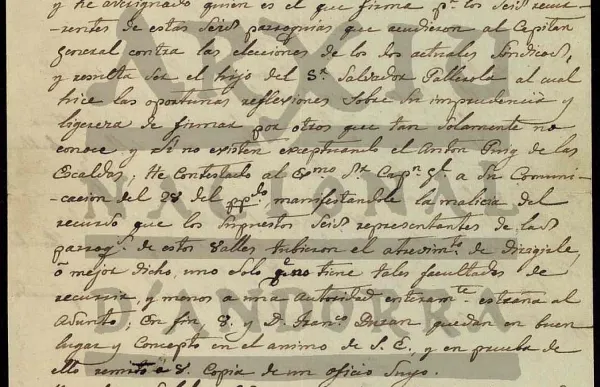 y he averiguado quien es el que firma pr. los Seis recur-
rentes de estas Seis parroquias que acudieron al Capitan
general contra las elecciones de los dos actuales Sindicos,
y resulta ser el hijo del Sr. Salvador Pallerola al cual
hice las oportunas reflexiones sobre su imprudencia y
ligereza de firmar por otros que tan solamente no
conoce y si no existen exceptuando el Anton Puig de las
Escaldas; He contestado al Exmo. Sr. Capn. Gl. a Su Comuni-
cacion del 28 del pp.do manifestandole la malicia del
recurso que los Supuestos Seis representantes de las
parroqs. de estos Valles tubieron el atrevimto. de dirigirle,
o mejor dicho, uno solo qe. no tiene tales facultades de
recurrir, y menos a una Autoridad enteramte. estraña al
Asunto; En fin V. y D. Franco. Duran quedan en buen
lugar y Concepto en el animo de S. E., y en prueba de
ello remito a V. Copia de un oficio Suyo.
ARXIU
NACIONAL
D'ANDORRA